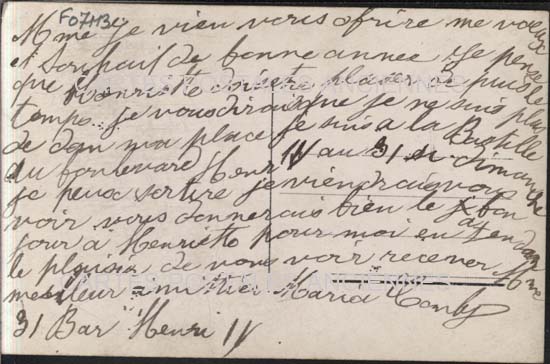 F07H3
Mme je vien vous ofrire me voeux
et souhail de bonne annee je pense
que Henriette doit etre placer de puis le
temps je vous dirai que je ne suis plus
de dan ma place je suis a la Bastille
du boulevard Henri IV au 31 si dimanche
je peux sortire je viendrais vous
voir vous donnerais bien le bon
jour a Henriette pour moi en atendan
le plaisir de vous voir recever Mme
meslleur amitier Maria
31 Bar Henri IV